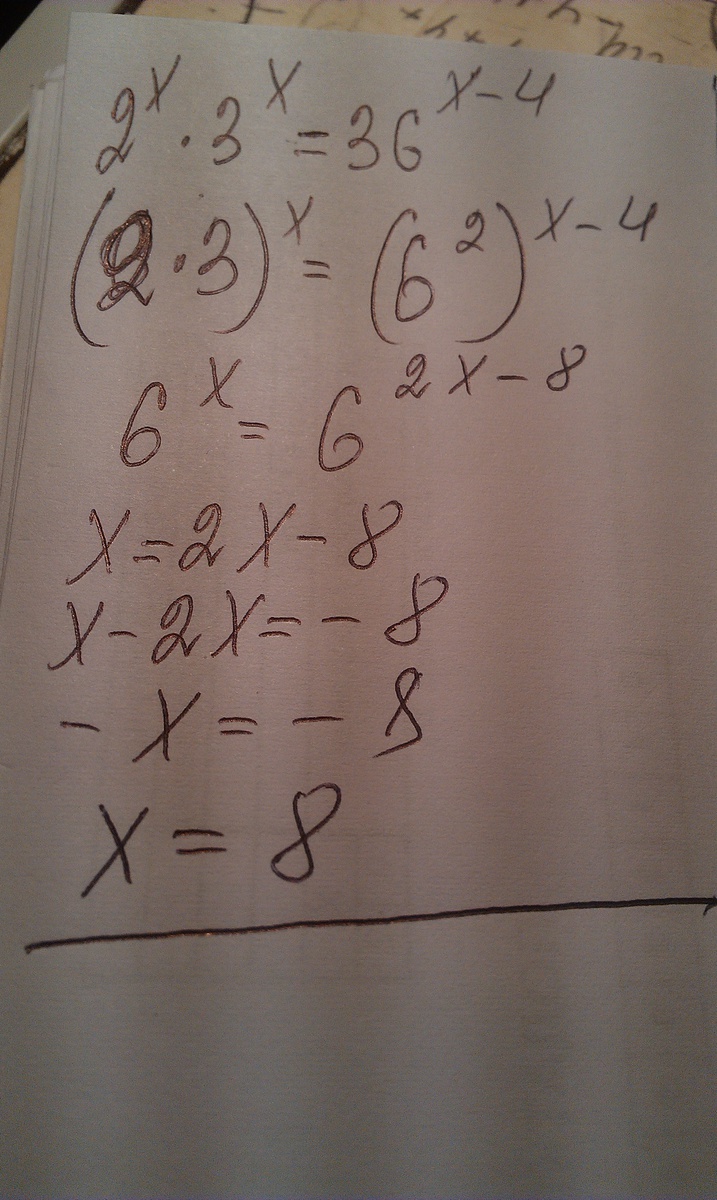 2^x · 3^x = 36^(x-4)
(2·3)^x = (6^2)^(x-4)
6^x = 6^(2x-8)
x=2x-8
x-2x=-8
-x=-8
x=8